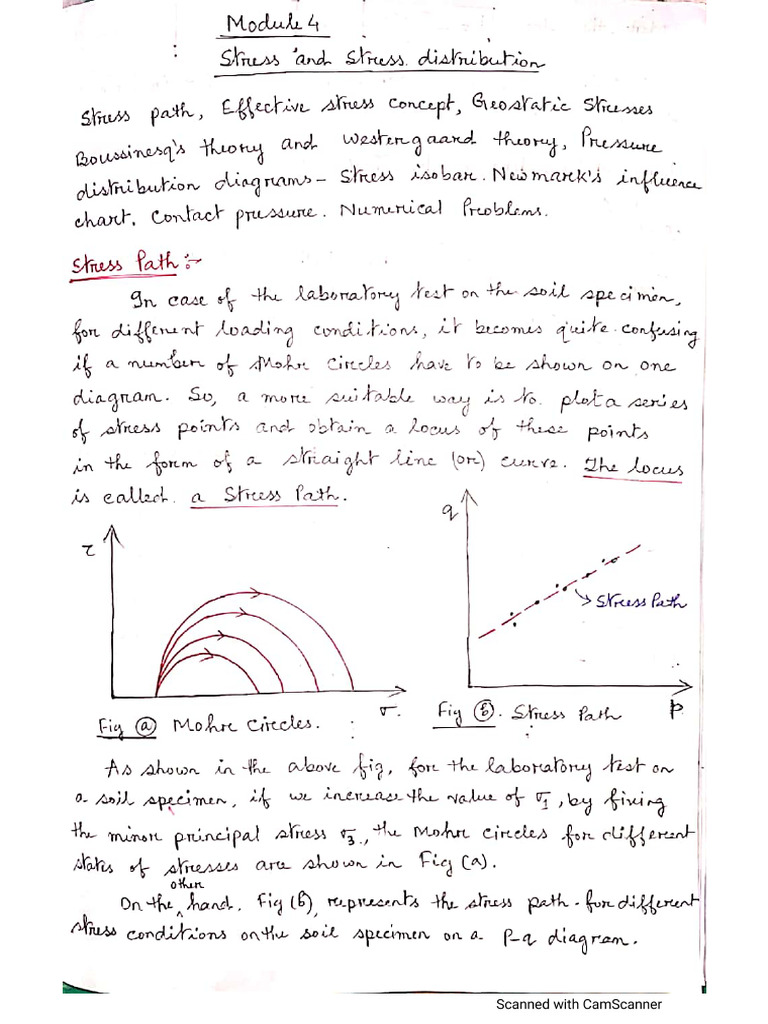 Module 4
: Stress and Stress distribution
Stress path, Effective stress concept, Geostatic Stresses
Boussinesq's theory and Westergaard theory, Pressure
distribution diagrams - Stress isobar. Newmark's influence
chart. Contact pressure. Numerical Problems.
Stress Path :-
In case of the laboratory test on the soil specimen,
for different loading conditions, it becomes quite confusing
if a number of Mohr Circles have to be shown on one
diagram. So, a more suitable way is to plot a series
of stress points and obtain a locus of these points
in the form of a straight line (or) curve. The locus
is called a Stress Path.
τ
σ.
Fig (a) Mohr Circles.
q
Stress Path
p
Fig (b). Stress Path
As shown in the above fig, for the laboratory test on
a soil specimen, if we increase the value of σ1, by fixing
the minor principal stress σ3, the Mohr circles for different
states of stresses are shown in Fig (a).
On the other hand, Fig (b), represents the stress path for different
stress conditions on the soil specimen on a P-q diagram.
Scanned with CamScanner